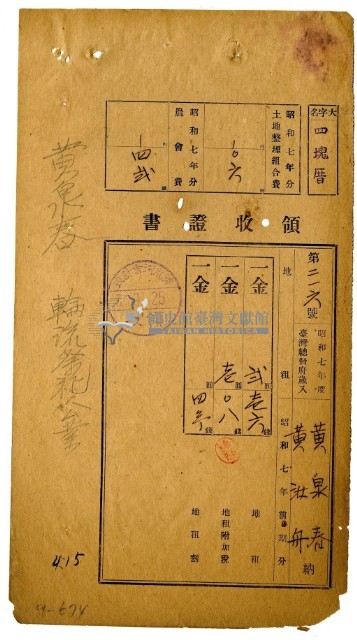 大字名
四塊厝
昭和七年分
土地整理組合費
〇六
昭和七年分
農會費
四弐
領收證書
第二一六號
昭和七年度
臺灣總督府歲入
地租
昭和七年前期分
黃泉春
納
一金
弐
壱六
地租
一金
壱〇八
地租附加税
一金
四
地租割
25
國史館臺灣文獻館
TAIWAN HISTORICA
黃泉春
輪流祭祀公業
4.15
4-674